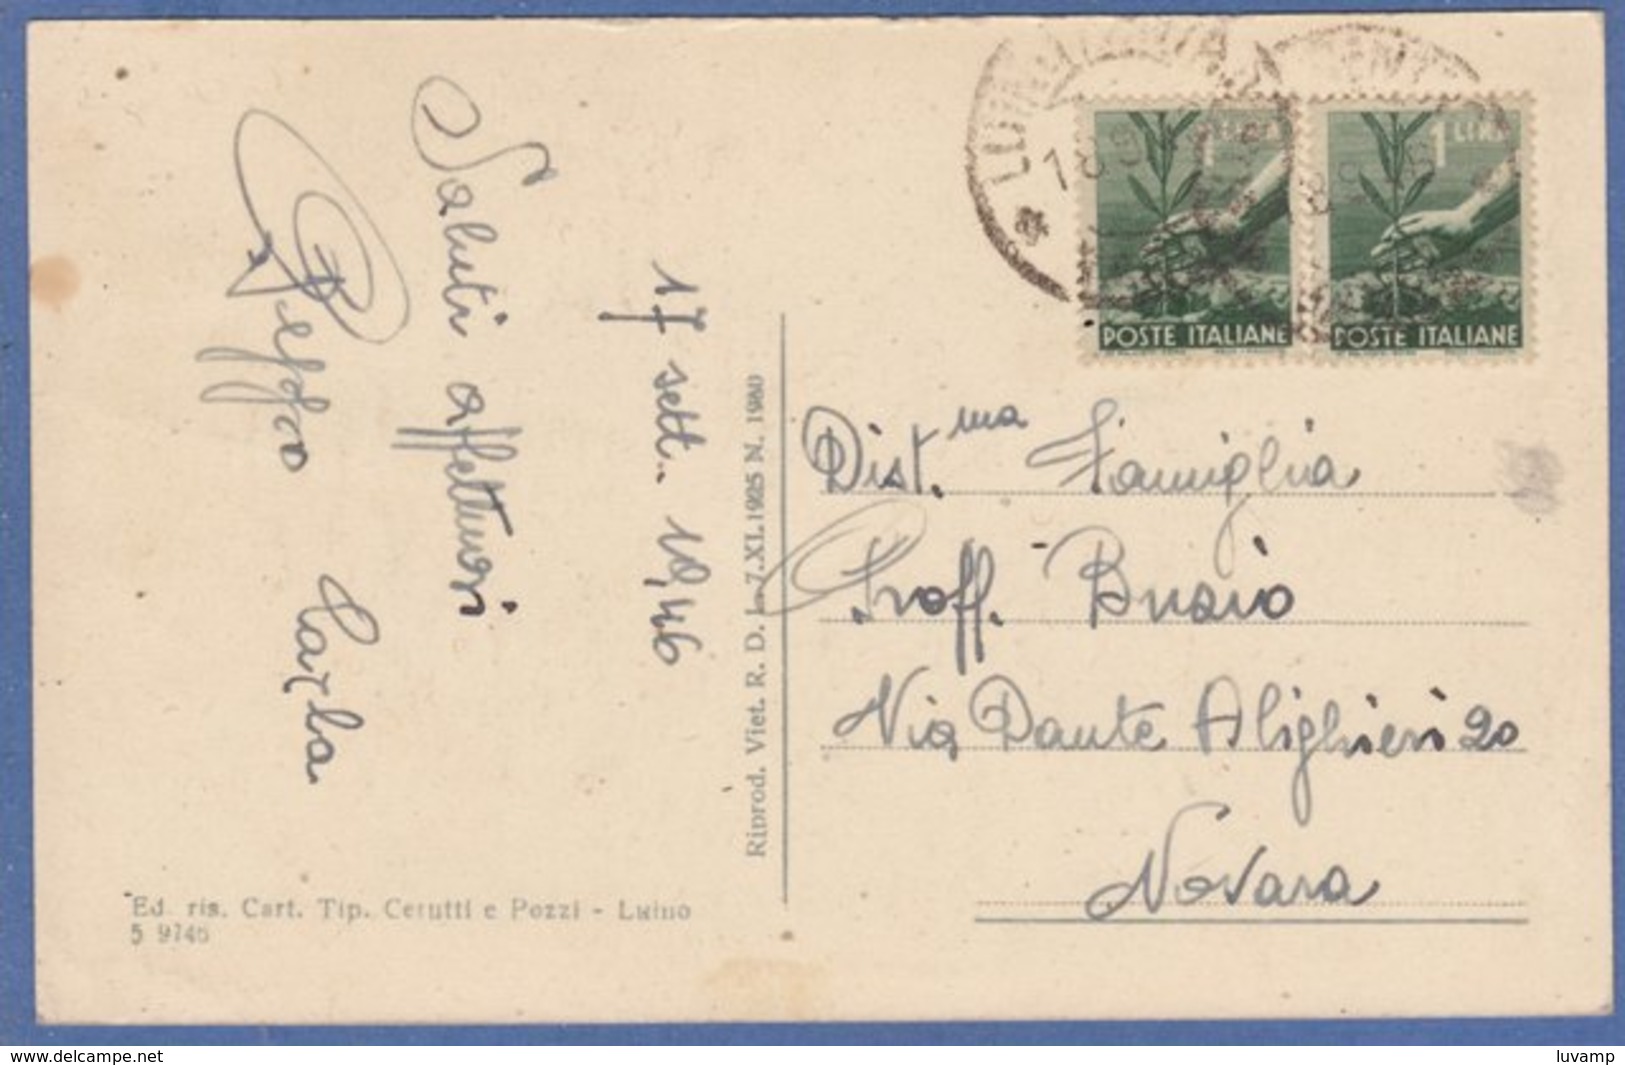 Saluti affettuosi
Beppe Carla
17 sett. 1946
Riprod. Viet. R. D. L. 7.XI.1925 N. 1980
Ed. ris. Cart. Tip. Cerutti e Pozzi - Luino
5 9746
LUINO
18 9
1 LIRA
POSTE ITALIANE
1 LIRA
POSTE ITALIANE
Dist.ma Famiglia
Proff.
Via Dante Alighieri 20
Novara
www.delcampe.net
luvamp